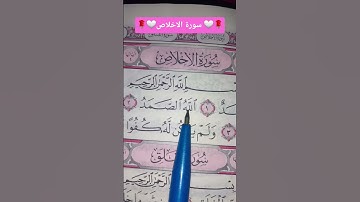 سورة الاخلاص
سُورَةُ الإِخْلَاصِ
بِسْمِ اللَّهِ الرَّحْمَٰنِ الرَّحِيمِ
دٌ ١ اللَّهُ الصَّمَدُ ٢
وَلَمْ يَكُن لَّهُ كُفُوًا ٣
سُورَ لَقِ
اللَّهِ الرَّحْمَٰنِ الرَّحِيمِ